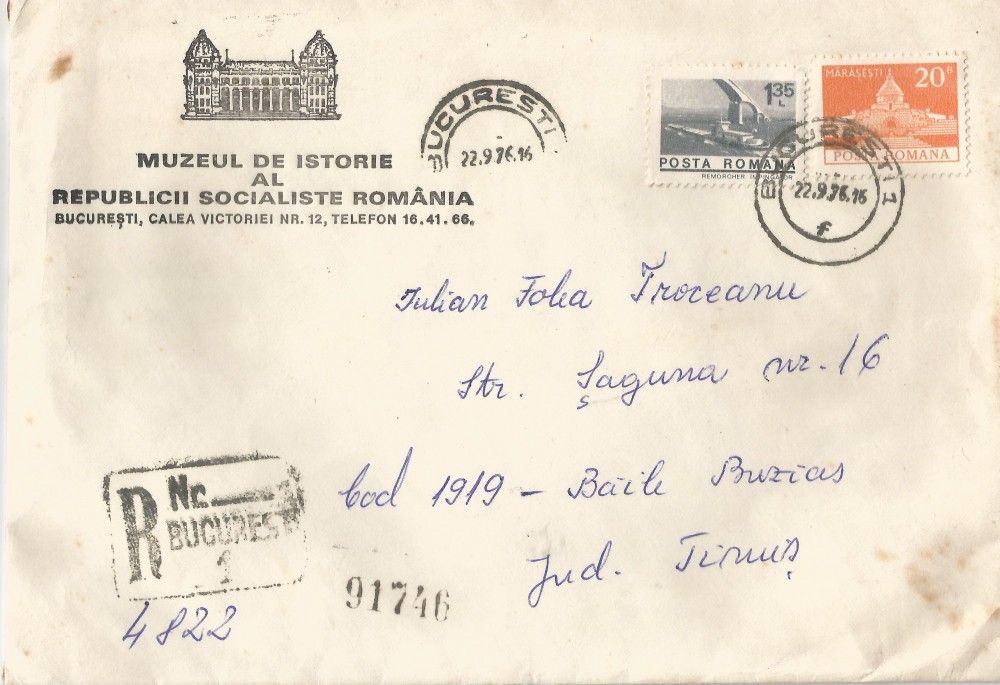 MUZEUL DE ISTORIE
AL
REPUBLICII SOCIALISTE ROMÂNIA
BUCUREȘTI, CALEA VICTORIEI NR. 12, TELEFON 16.41.66.
BUCUREȘTI
22.9.76.16
1.35
L
POSTA ROMANA
REMORCHER IMPINGATOR
MĂRĂȘEȘTI
20 B
POSTA ROMANA
BUCUREȘTI 1
22.9.76.16
f
Iulian Folea Troceanu
Str. Șaguna nr. 16
Cod 1919 - Băile Buziaș
Jud. Timiș
R Nr.
BUCUREȘTI
1
4822
91746